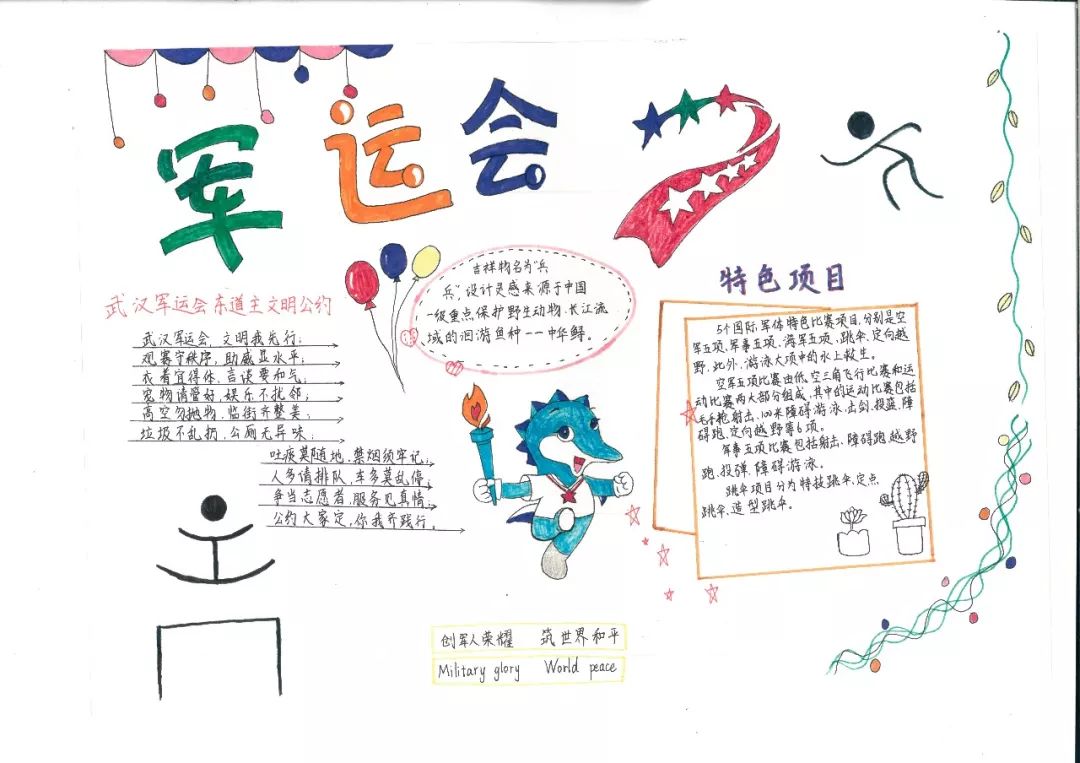 军运会
武汉军运会东道主文明公约
武汉军运会,文明我先行;
观赛守秩序,助威显水平;
衣着宜得体,言谈要和气;
宠物请管好,娱乐不扰邻;
高空勿抛物,临街齐整美;
垃圾不乱扔,公厕无异味;
吐痰莫随地,禁烟须牢记;
人多请排队,车多莫乱停;
争当志愿者,服务见真情;
公约大家定,你我齐践行。
吉祥物名为“兵
兵”,设计灵感来源于中国
一级重点保护野生动物、长江流
域的洄游鱼种——中华鲟。
特色项目
5个国际军体特色比赛项目,分别是空
军五项、军事五项、海军五项、跳伞、定向越
野,此外,游泳大项中的水上救生。
空军五项比赛由低空三角飞行比赛和运
动比赛两大部分组成,其中的运动比赛包括
手枪射击、100米障碍游泳、击剑、投篮、障
碍跑、定向越野等6项。
军事五项比赛包括射击、障碍跑、越野
跑、投弹、障碍游泳。
跳伞项目分为特技跳伞、定点
跳伞、造型跳伞。
创军人荣耀 筑世界和平
Military glory World peace